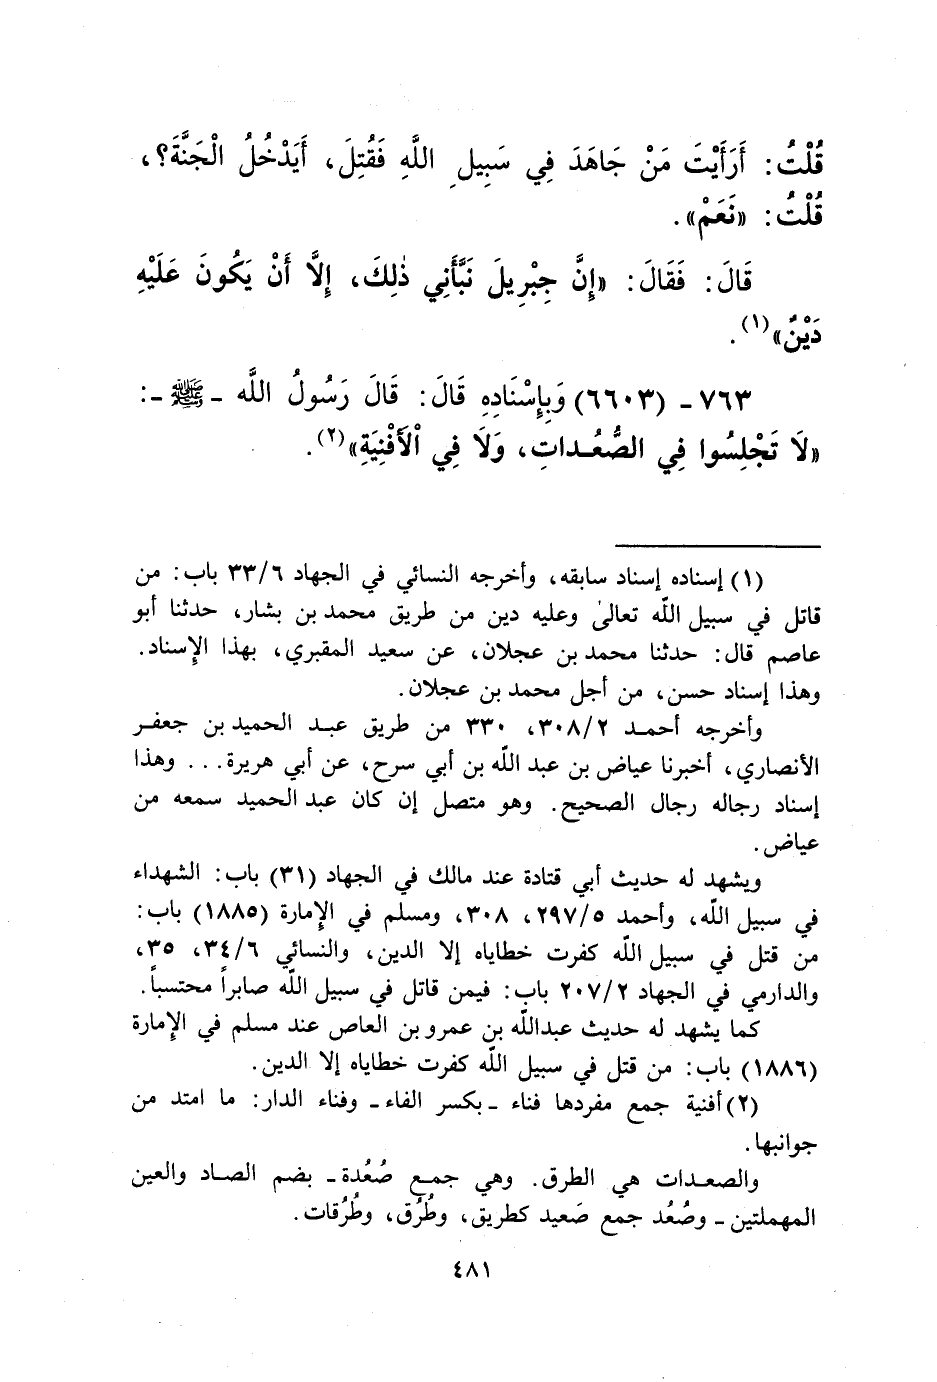 قُلْتُ: أَرَأَيْتَ مَنْ جَاهَدَ فِي سَبِيلِ اللَّهِ فَقُتِلَ، أَيَدْخُلُ الْجَنَّةَ؟،
قُلْتُ: «نَعَمْ».
قَالَ: فَقَالَ: «إِنَّ جِبْرِيلَ نَبَّأَنِي ذٰلِكَ، إِلَّا أَنْ يَكُونَ عَلَيْهِ
دَيْنٌ»(١).
٧٦٣ - (٦٦٠٣) وَبِإِسْنَادِهِ قَالَ: قَالَ رَسُولُ اللَّه - ﷺ -:
«لَا تَجْلِسُوا فِي الصُّعُدَاتِ، وَلَا فِي الْأَفْنِيَةِ»(٢).
(١) إسناده إسناد سابقه، وأخرجه النسائي في الجهاد ٣٣/٦ باب: من
قاتل في سبيل اللّه تعالىٰ وعليه دين من طريق محمد بن بشار، حدثنا أبو
عاصم قال: حدثنا محمد بن عجلان، عن سعيد المقبري، بهذا الإسناد.
وهذا إسناد حسن، من أجل محمد بن عجلان.
وأخرجه أحمد ٣٠٨/٢، ٣٣٠ من طريق عبد الحميد بن جعفر
الأنصاري، أخبرنا عياض بن عبد اللّه بن أبي سرح، عن أبي هريرة... وهذا
إسناد رجاله رجال الصحيح. وهو متصل إن كان عبد الحميد سمعه من
عياض.
ويشهد له حديث أبي قتادة عند مالك في الجهاد (٣١) باب: الشهداء
في سبيل اللّه، وأحمد ٢٩٧/٥، ٣٠٨، ومسلم في الإمارة (١٨٨٥) باب:
من قتل في سبيل اللّه كفرت خطاياه إلا الدين، والنسائي ٣٤/٦، ٣٥،
والدارمي في الجهاد ٢٠٧/٢ باب: فيمن قاتل في سبيل اللّه صابراً محتسباً.
كما يشهد له حديث عبداللّه بن عمرو بن العاص عند مسلم في الإمارة
(١٨٨٦) باب: من قتل في سبيل اللّه كفرت خطاياه إلا الدين.
(٢) أفنية جمع مفردها فناء - بكسر الفاء - وفناء الدار: ما امتد من
جوانبها.
والصعدات هي الطرق. وهي جمع صُعُدة - بضم الصاد والعين
المهملتين - وصُعُد جمع صَعيد كطريق، وطُرُق، وطُرُقات.
٤٨١